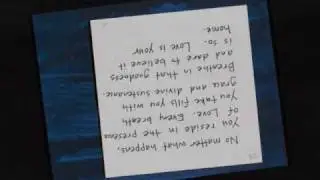 No matter what happens,
You reside in the presence
of Love. Every breath
You take fills you with
grace and divine sustenance.
Breathe in that goodness
and dare to believe it
is so. Love is your
home.